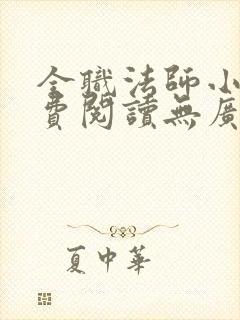 全職法師小
費閱讀無廣
夏中華